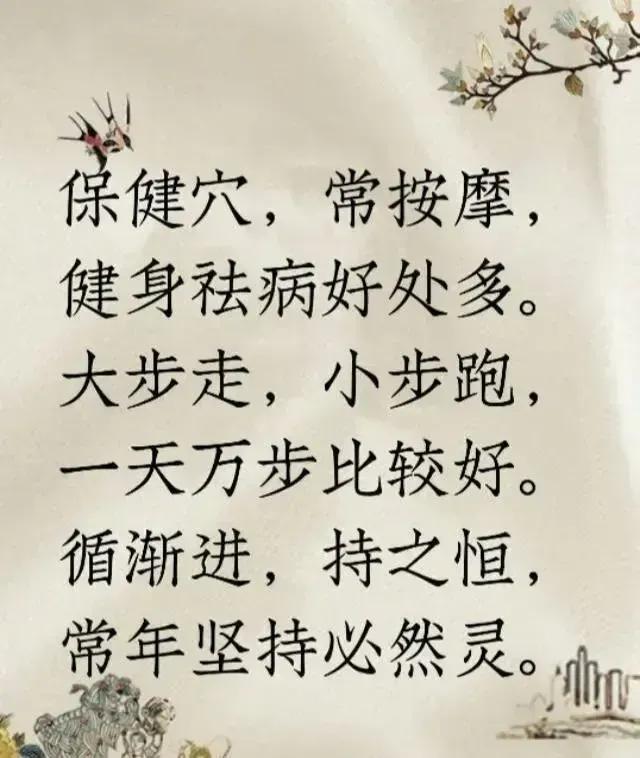 保健穴，常按摩，
健身祛病好处多。
大步走，小步跑，
一天万步比较好。
循渐进，持之恒，
常年坚持必然灵。